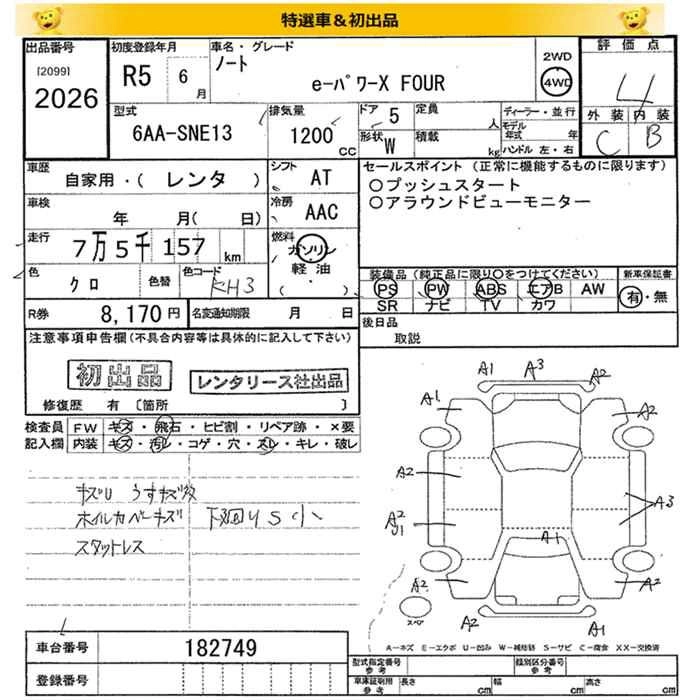 特選車&初出品
出品番号
[2099]
2026
初度登録年月
R5 6月
車名・グレード
ノート
e-パワーX FOUR
2WD
4WD
評価点
4
外装 内装
C B
型式
6AA-SNE13
排気量
1200 CC
ドア 5
形状 W
定員 人
積載 kg
ディーラー・並行
モデル年式 年
ハンドル 左・右
車歴
自家用・( レンタ )
シフト AT
車検
年 月( 日)
冷房 AAC
走行
7万5千157 km
燃料
ガソリン
軽油
( ・ )
色
クロ
色替
色コード
KH3
R券 8,170円
名変通知期限 月 日
セールスポイント (正常に機能するものに限ります)
○プッシュスタート
○アラウンドビューモニター
装備品(純正品に限り○をつけてください)
PS PW ABS エアB AW
SR ナビ TV カワ
新車保証書
有・無
後日品
取説
注意事項申告欄(不具合内容等は具体的に記入して下さい)
初出品
レンタリース社出品
修復歴 有 〔箇所 〕
検査員記入欄
FW キズ・飛石・ヒビ割・リペア跡・×要
内装 キズ・汚レ・コゲ・穴・スレ・キレ・破レ
キズU うすキズ多
ホイルカバーキズ 下廻りS小
スタットレス
A1 A3 A2
A1 A2
A2
A3
A2
U1
A1
A2 A2
スペア
A2 A1
A-キズ E-エクボ U-凹み W-補修跡 S-サビ C-腐食 XX-交換済
車台番号 182749
登録番号
型式指定番号 参考
類別区分番号 参考
車庫証明用 参考
長さ cm 幅 cm 高さ cm